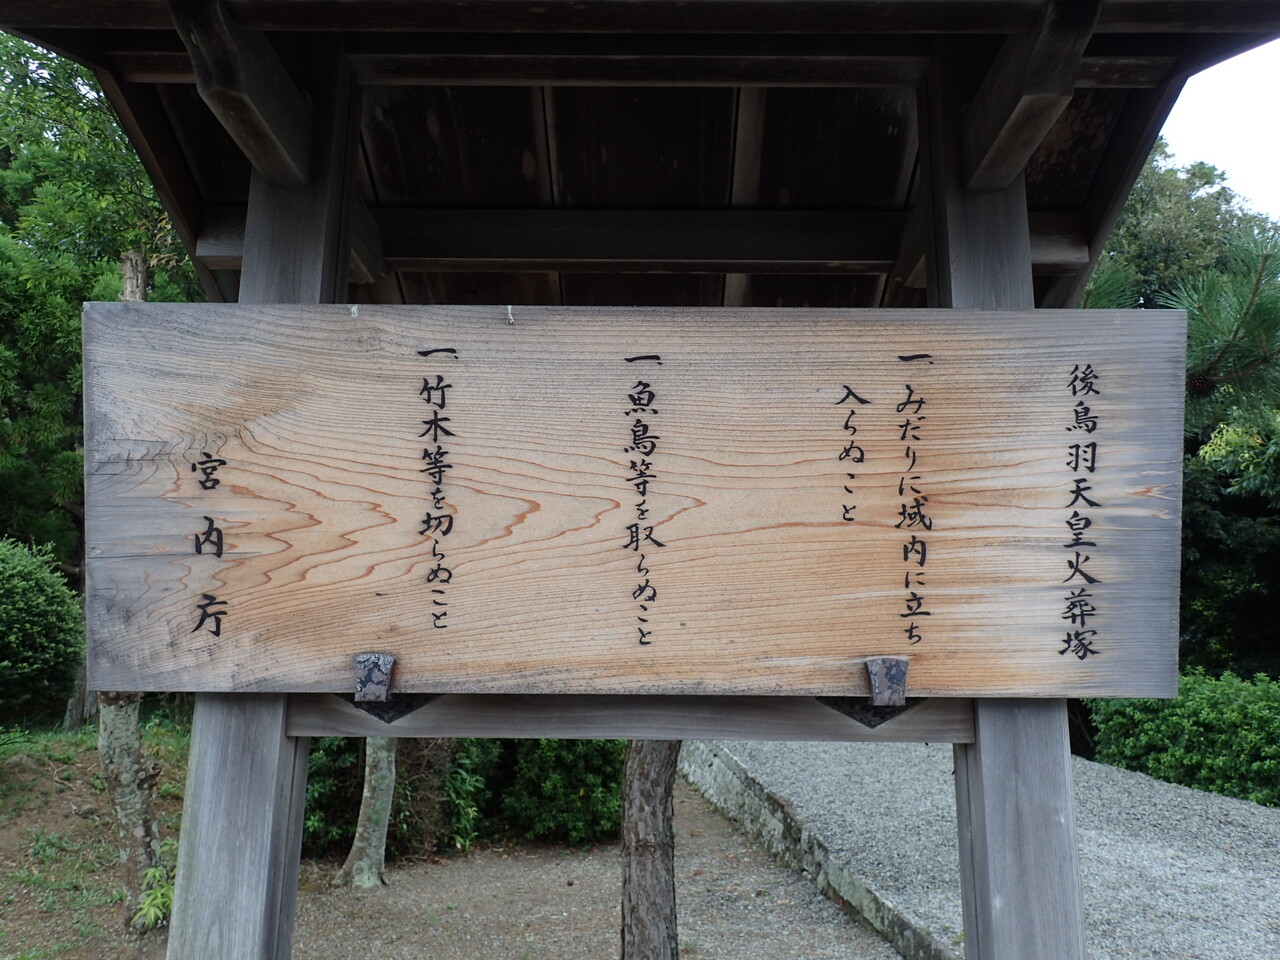 後鳥羽天皇火葬塚
一、みだりに域内に立ち
入らぬこと
一、魚鳥等を取らぬこと
一、竹木等を切らぬこと
宮内庁